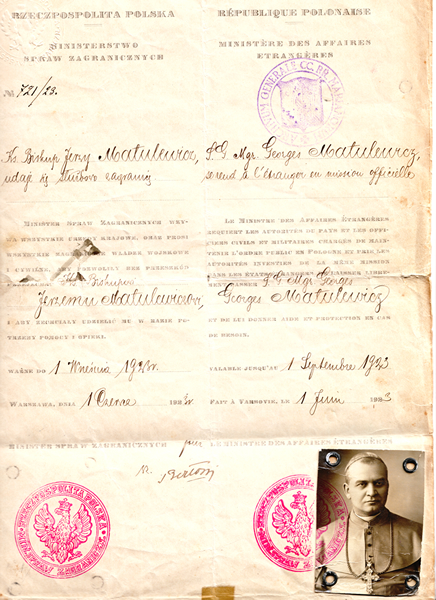 RZECZPOSPOLITA POLSKA
MINISTERSTWO
SPRAW ZAGRANICZNYCH
№ 721/23.
Ks Biskup Jerzy Matulewicz,
udaje się służbowo zagranicę
MINISTER SPRAW ZAGRANICZNYCH WZY-
WA WSZYSTKIE URZĘDY KRAJOWE, ORAZ PROSI
WSZYSTKIE WŁADZE WOJSKOWE
I CYWILNE, BEZ PRZESZKÓD
Biskupowi
Jerzemu Matulewiczowi
I ABY ZECHCIAŁY UDZIELIĆ MU W RAZIE PO-
TRZEBY POMOCY I OPIEKI.
WAŻNE DO 1 Września 1923r.
WARSZAWA, DNIA 1 Czerwca 1923r
MINISTER SPRAW ZAGRANICZNYCH
RÉPUBLIQUE POLONAISE
MINISTÈRE DES AFFAIRES
ETRANGÈRES
S.G Mgr. Georges Matulewicz,
se rend à l'étranger en mission officielle
LE MINISTRE DES AFFAIRES ÉTRANGÈRES
REQUIERT LES AUTORITÉS DU PAYS ET LES OFFI-
CIERS CIVILS ET MILITAIRES CHARGÉS DE MAIN-
TENIR L'ORDRE PUBLIC EN POLOGNE ET PRIE LES
AUTORITÉS INVESTIES DE LA MÊME MISSION
DANS LES ÉTATS ÉTRANGERS D'AIDER
S.G Mgr Georges
Georges Matulewicz
ET DE LUI DONNER AIDE ET PROTECTION EN CAS
DE BESOIN.
VALABLE JUSQU'AU 1 Septembre 1923
FAIT À VARSOVIE, LE 1 Juin 1923
LE MINISTRE DES AFFAIRES ÉTRANGÈRES
RZECZPOSPOLITA POLSKA